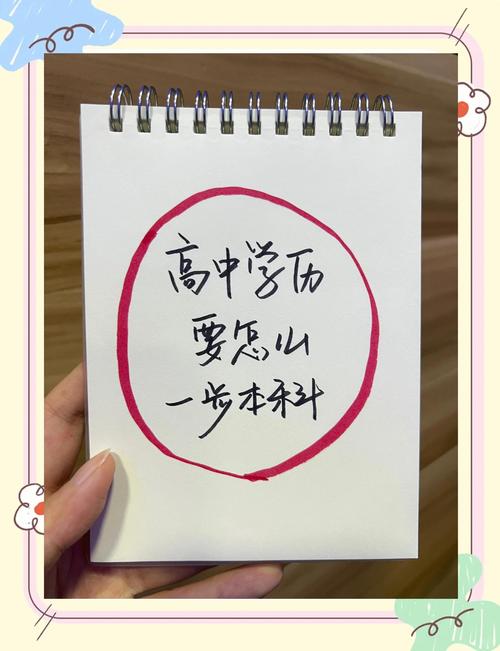 高中学历
要怎山
一步本科